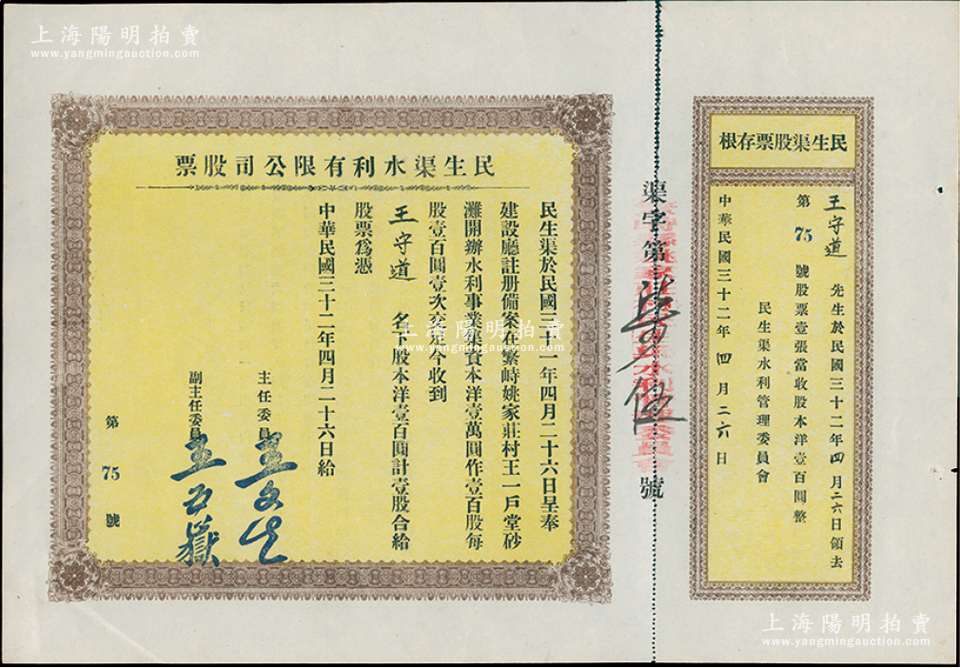 上海陽明拍賣
www.yangmingauction.com
民生渠水利有限公司股票
民生渠於民國三十一年四月二十六日呈奉
建設廳註册備案在繁峙姚家莊村王一戶堂砂
灘開辦水利事業集資本洋壹萬圓作壹百股每
股壹百圓壹次交足今收到
王守道 名下股本洋壹百圓計壹股合給
股票爲憑
中華民國三十二年四月二十六日給
主任委員
副主任委員 王五嶽
第 75 號
渠字第柒拾伍號
民生渠股票存根
王守道 先生於民國三十二年四月二六日領去
第 75 號股票壹張當收股本洋壹百圓整
民生渠水利管理委員會
中華民國三十二年四月二六日
上海陽明拍賣
www.yangmingauction.com
上海陽明拍賣
www.yangmingauction.com